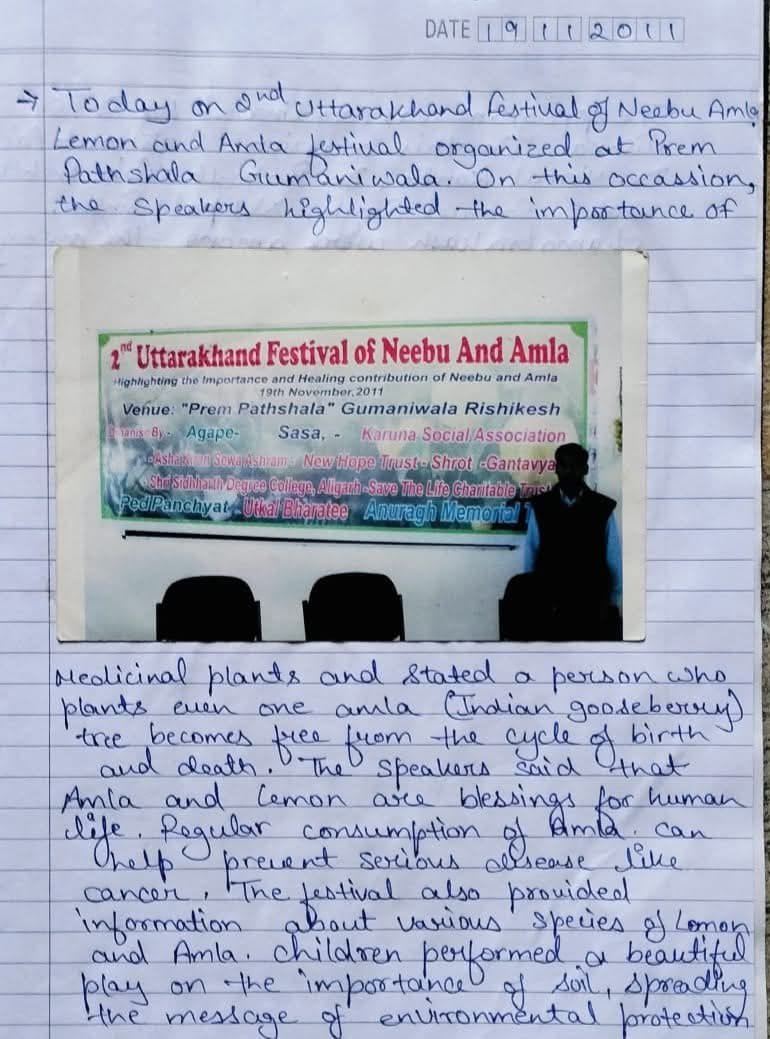 DATE 19 11 2011
→ Today on 2nd Uttarakhand festival of Neebu Amla
Lemon and Amla festival organized at Prem
Pathshala Gumaniwala. On this occassion,
the speakers highlighted the importance of
2nd Uttarakhand Festival of Neebu And Amla
Highlighting the Importance and Healing contribution of Neebu and Amla
19th November,2011
Venue: "Prem Pathshala" Gumaniwala Rishikesh
By- Agape- Sasa, - Karuna Social Association
Sewa Ashram- New Hope Trust- Shrot -Gantavya
Shri Sidhharth Degree College, Aligarh -Save The Life Charitable Trust
Ped Panchyat Utkal Bharatee Anuragh Memorial
Medicinal plants and stated a person who
plants even one amla (Indian gooseberry)
tree becomes free from the cycle of birth
and death. The speakers said that
Amla and Lemon are blessings for human
life. Regular consumption of Amla can
help prevent serious disease like
cancer. The festival also provided
information about various species of Lemon
and Amla. children performed a beautiful
play on the importance of soil, spreading
the message of environmental protection